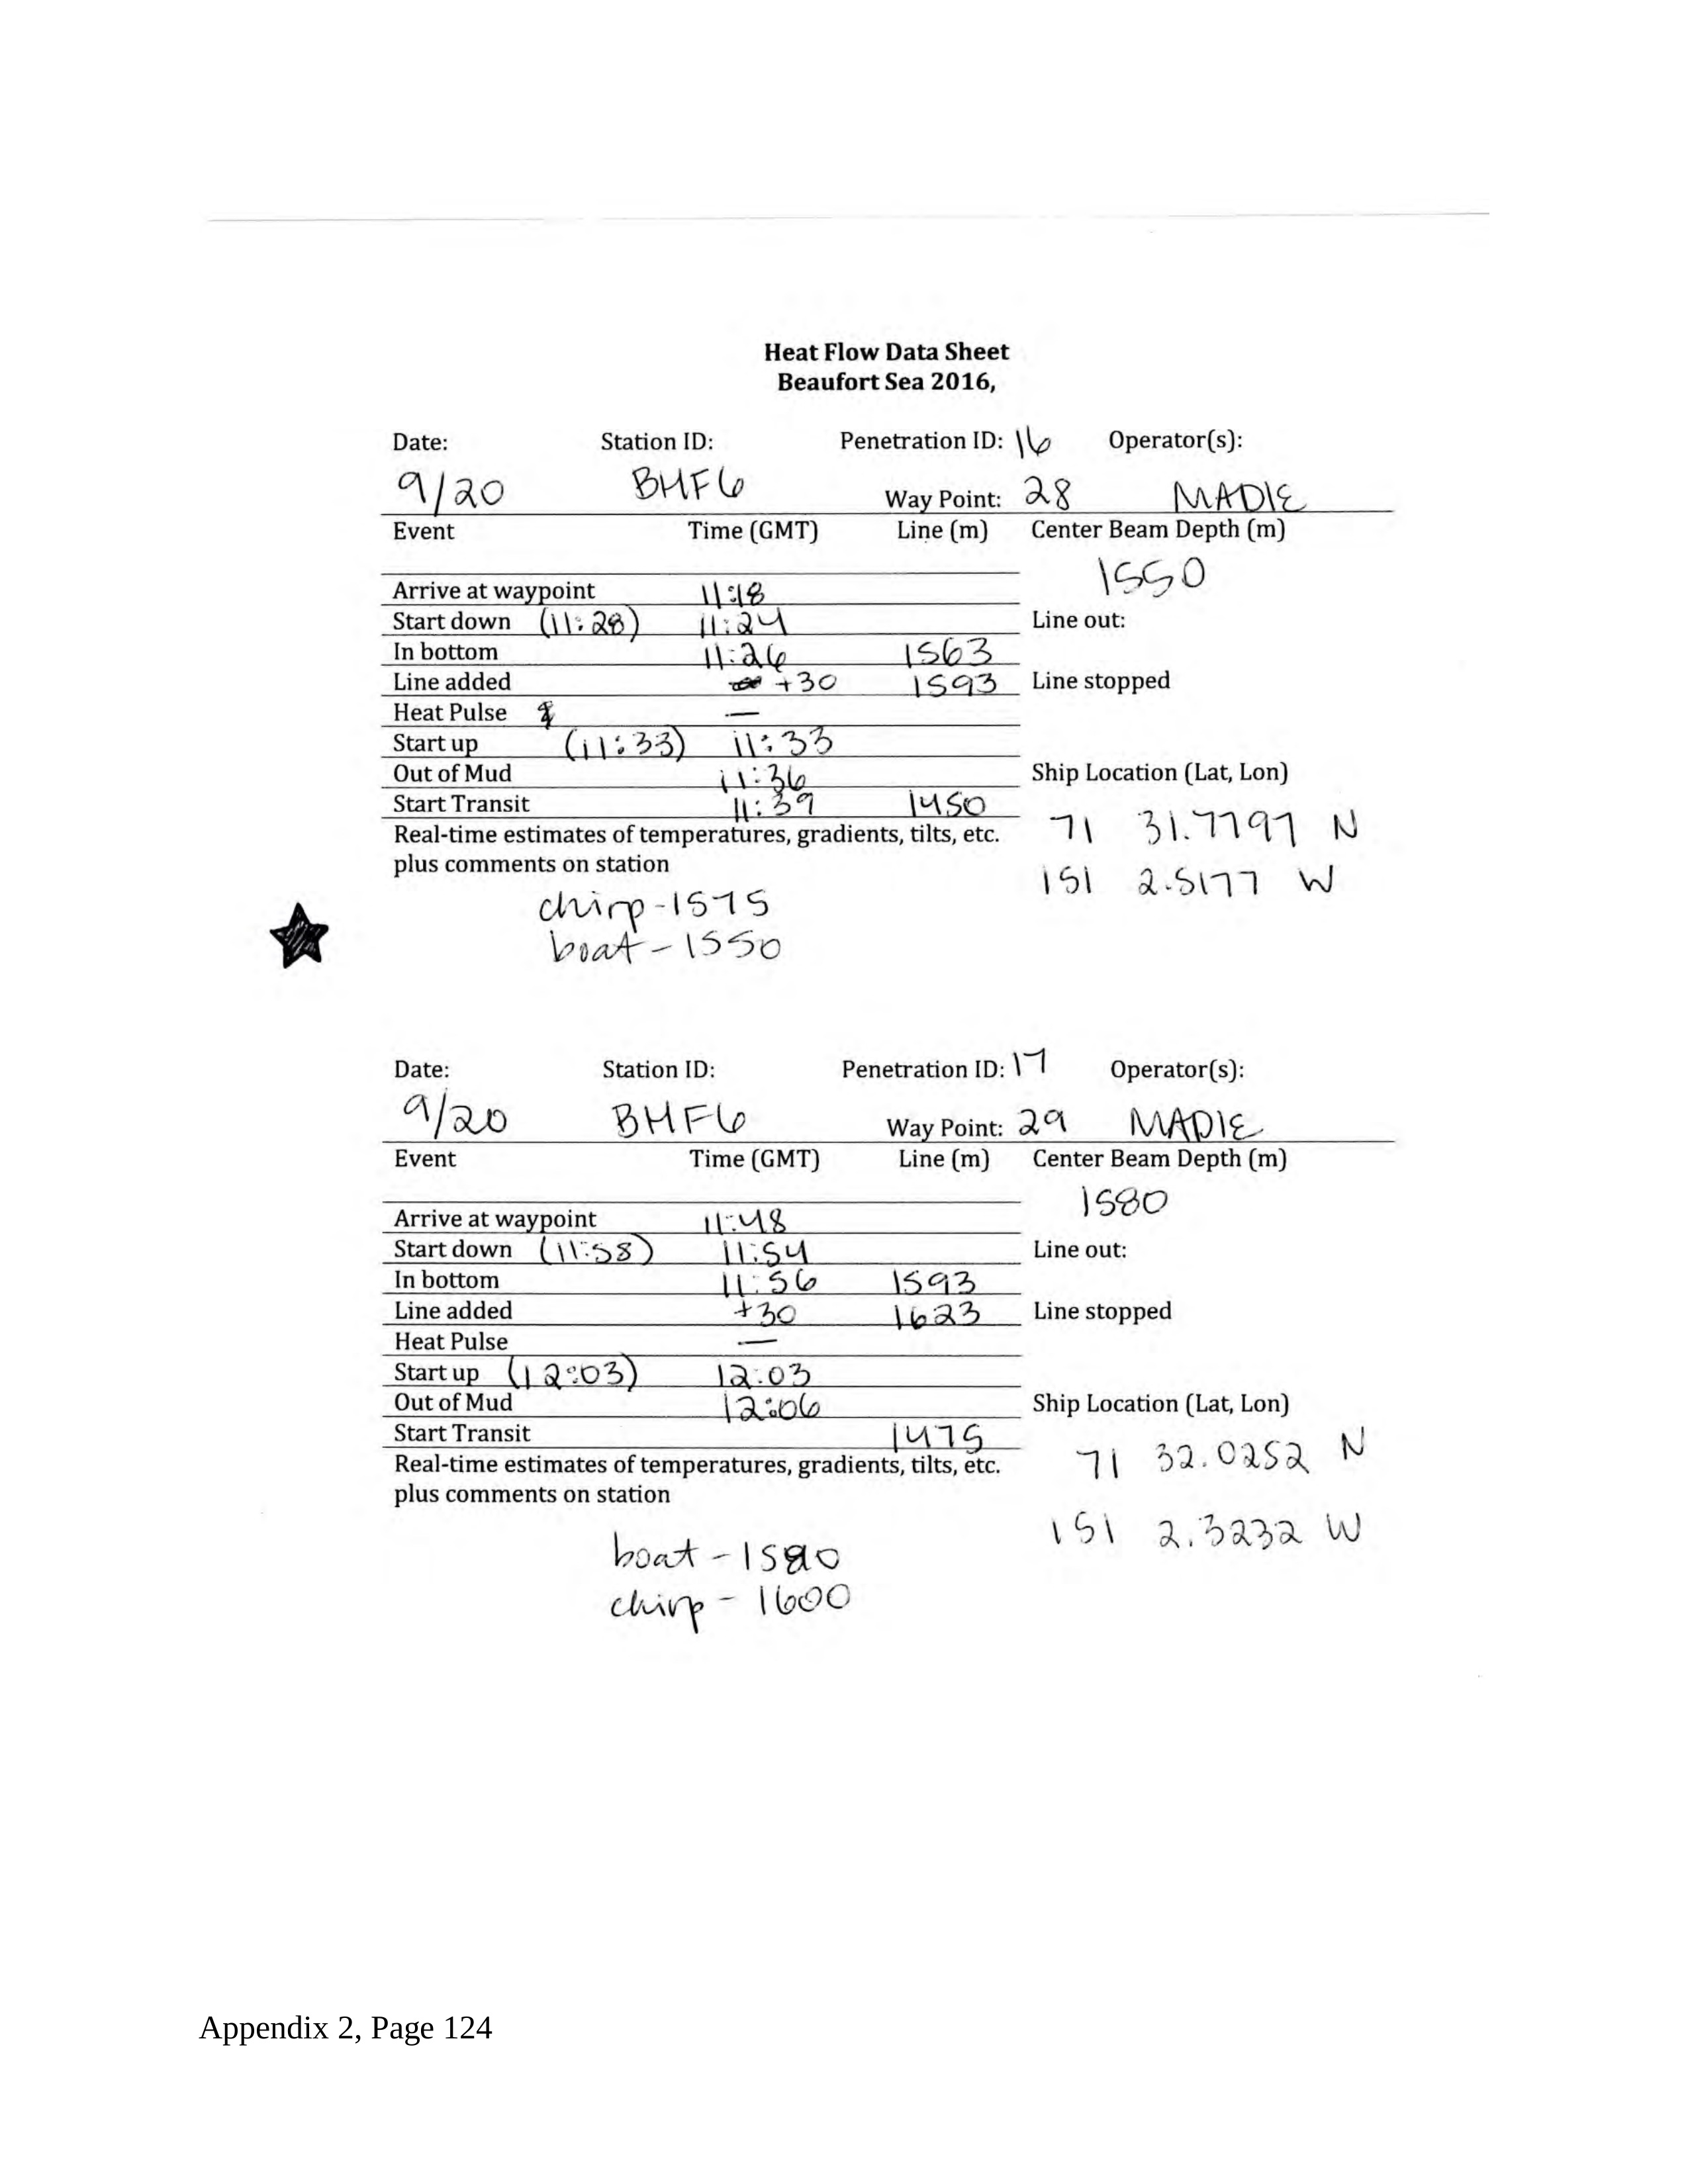 Heat Flow Data Sheet
Beaufort Sea 2016,
Date: Station ID: Penetration ID: 16 Operator(s):
9/20 BHF6 Way Point: 28 MADIE
Event Time (GMT) Line (m) Center Beam Depth (m)
1550
Arrive at waypoint 11:18
Start down (11:28) 11:24 Line out:
In bottom 11:26 1563
Line added +30 1593 Line stopped
Heat Pulse —
Start up (11:33) 11:33
Out of Mud 11:36 Ship Location (Lat, Lon)
Start Transit 11:39 1450
71 31.7797 N
Real-time estimates of temperatures, gradients, tilts, etc.
plus comments on station
151 2.5177 W
chirp - 1575
boat - 1550
Date: Station ID: Penetration ID: 17 Operator(s):
9/20 BHF6 Way Point: 29 MADIE
Event Time (GMT) Line (m) Center Beam Depth (m)
1580
Arrive at waypoint 11:48
Start down (11:58) 11:54 Line out:
In bottom 11:56 1593
Line added +30 1623 Line stopped
Heat Pulse —
Start up (12:03) 12:03
Out of Mud 12:06 Ship Location (Lat, Lon)
Start Transit 1475
71 32.0252 N
Real-time estimates of temperatures, gradients, tilts, etc.
plus comments on station
151 2.3232 W
boat - 1580
chirp - 1600
Appendix 2, Page 124